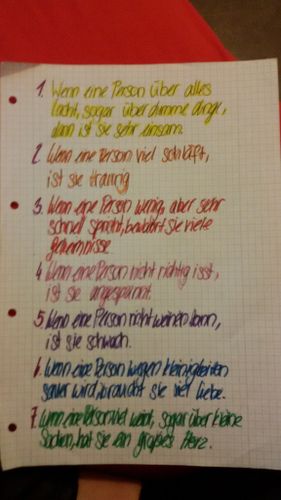 1. Wenn eine Person über alles
lacht, sogar über dumme dinge,
dann ist sie sehr einsam.
2. Wenn eine Person viel schläft,
ist sie traurig
3. Wenn eine Person wenig, aber sehr
schnell spricht, bewahrt sie viele
geheimnisse.
4 Wenn eine Person nicht richtig isst,
ist sie angespannt.
5. Wenn eine Person nicht weinen kann,
ist sie schwach.
6. Wenn eine Person wegen kleinigkeiten
sauer wird, braucht sie viel liebe.
7. Wenn eine Person viel weint, sogar über kleine
Sachen, hat sie ein großes Herz.